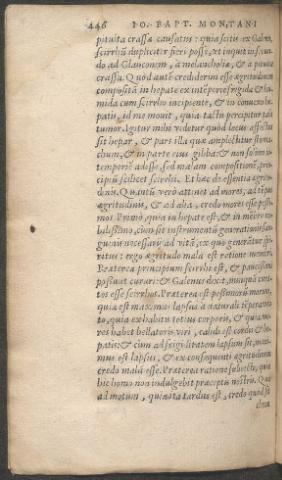 446 IO. BAPT. MONTANI
pituita crassa causatus: quia scitis ex Galeno,
scirrhũ duplicatũ fieri posse, ut inquit in secun
do ad Glauconem, à melancholia, & a pituita
crassa. Quod autẽ crediderim esse ægritudinem
compositã in hepate ex intẽperie frigida & hu
mida cum scirrho incipiente, & in conuexo he
patis, id me mouit, quia tactu percipitur talis
tumor. Igitur mihi videtur quòd locus affectus
sit hepar, & pars illa quæ amplectitur stoma
chum, & in parte eius gibba: & non solùm in
temperiẽ adesse, sed malam compositionẽ, prin
cipiũ scilicet scirrhi. Et hæc de essentia ægritu
dinis. Quantũ verò attinet ad mores, ad tẽpus
ægritudinis, & ad alia, credo mores esse pessi
mos. Primò, quia in hepate est, & in mẽbro no
bilissimo, cùm sit instrumentũ generationis san
guinis necessarij ad vitã, ex quo generãtur spi
ritus: ergo ægritudo mala est ratione membri.
Præterea principium scirrhi est, & paucissimi
possunt curari: & Galenus dixit, nunquã cura
tos esse scirrhos. Præterea est pessimorũ morum,
quia est maximus lapsus à naturali tẽperamen
to, quia ex habitu totius corporis, & quia mo
res habet bellatoris viri, calidi est cordis & he
patis: & cùm ad frigiditatem lapsum sit, maxi
mus est lapsus, & ex consequenti ægritudinem
credo malã esse. Præterea ratione subiecti, quia
hic homo non indulgebit præceptis nostris. Quo
ad motum, quia ita tardus est, credo quòd sit